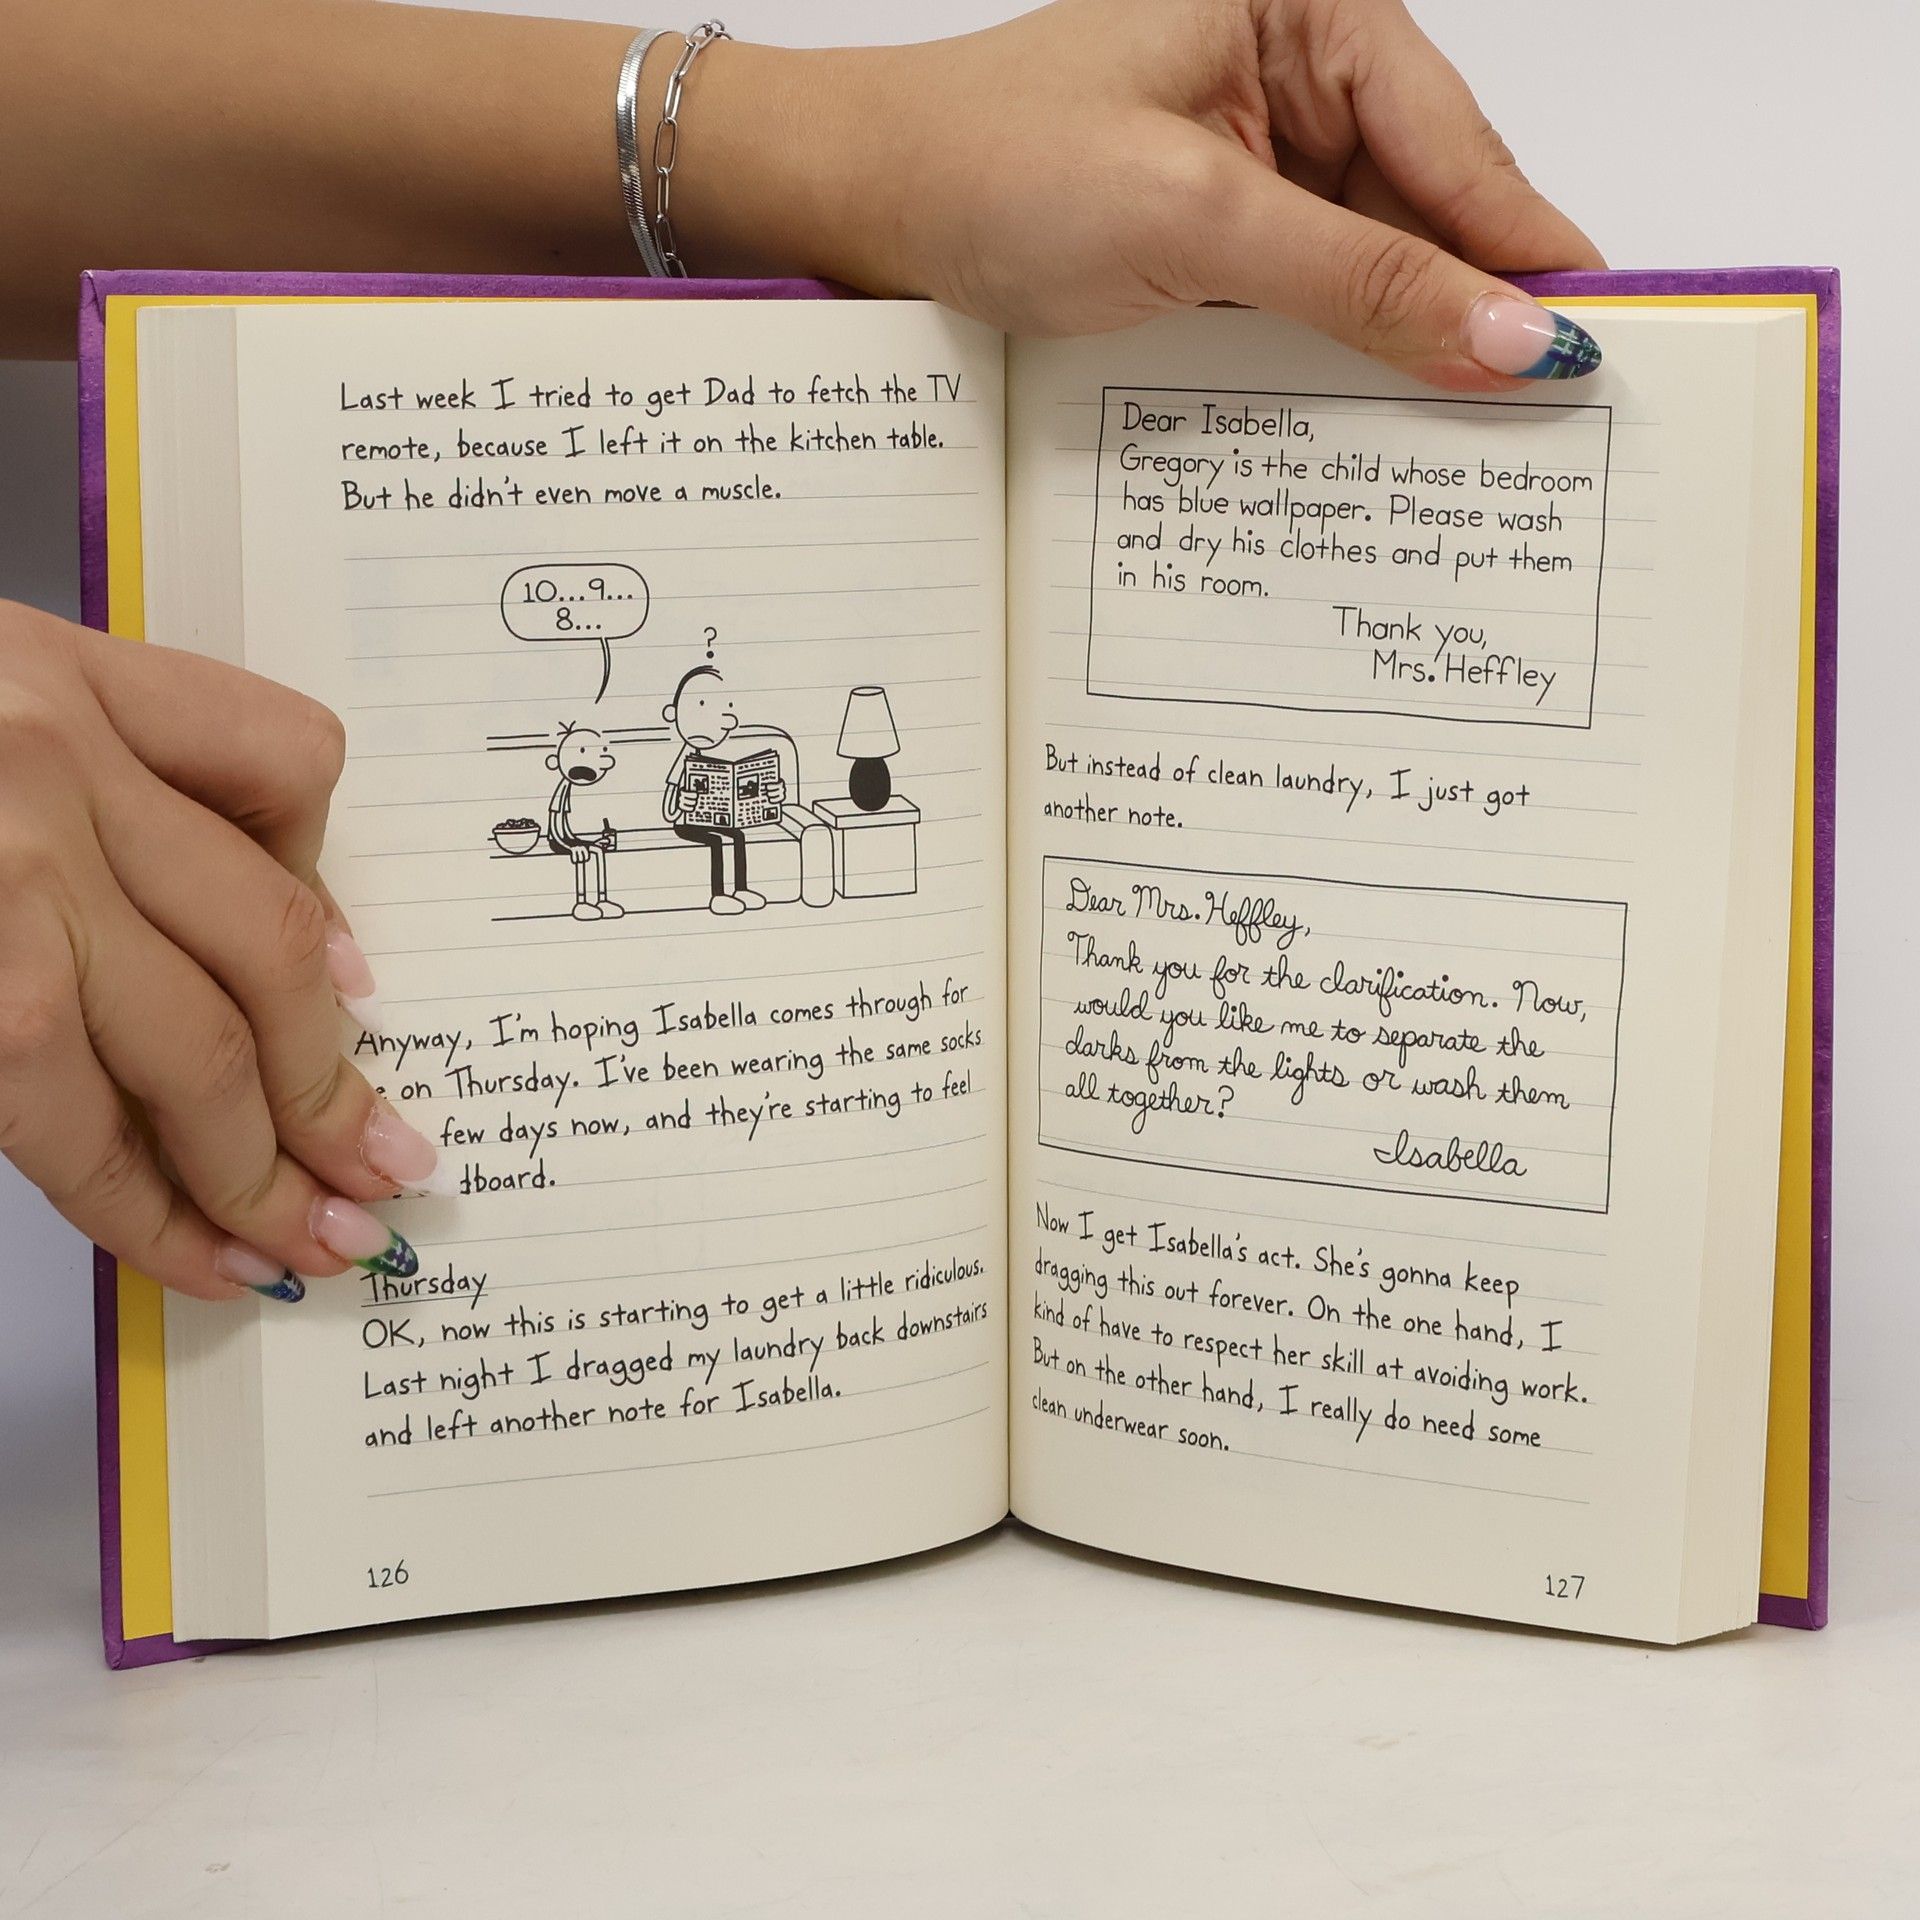 Last week I tried to get Dad to fetch the TV
remote, because I left it on the kitchen table.
But he didn't even move a muscle.
10...9...
8...
?
Anyway, I'm hoping Isabella comes through for
on Thursday. I've been wearing the same socks
few days now, and they're starting to feel
Thursday
OK, now this is starting to get a little ridiculous.
Last night I dragged my laundry back downstairs
and left another note for Isabella.
126
Dear Isabella,
Gregory is the child whose bedroom
has blue wallpaper. Please wash
and dry his clothes and put them
in his room.
Thank you,
Mrs. Heffley
But instead of clean laundry, I just got
another note.
Dear Mrs. Heffley,
Thank you for the clarification. Now,
would you like me to separate the
darks from the lights or wash them
all together?
Isabella
Now I get Isabella's act. She's gonna keep
dragging this out forever. On the one hand, I
kind of have to respect her skill at avoiding work.
But on the other hand, I really do need some
clean underwear soon.
127